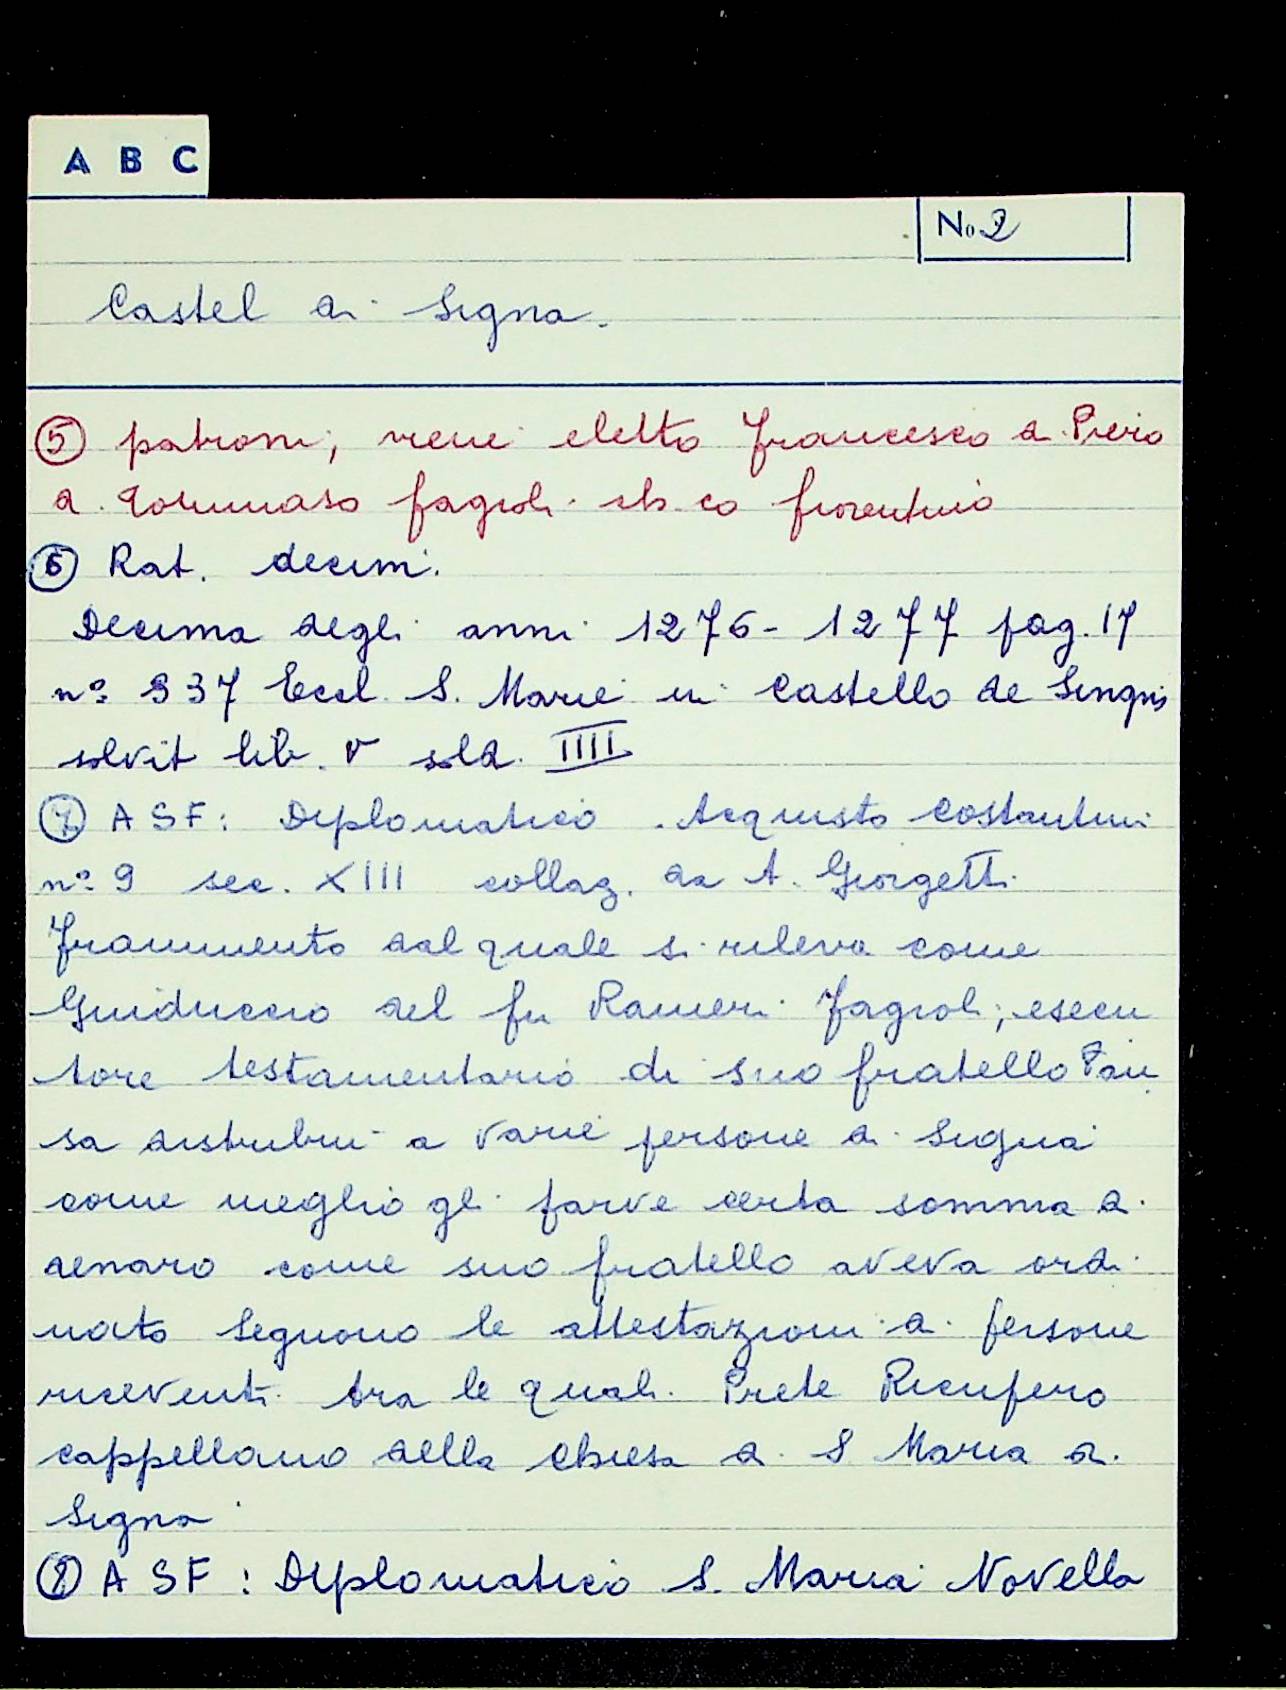 A B C
No 2
Castel di Signa.
⑤ patroni, viene eletto Francesco di Piero
di Tommaso Fagioli ch co fiorentino
⑥ Rat. decim.
Decima degli anni 1276-1277 pag. 17
nº 337 Eccl. S. Marie in Castello de Singnis
solvit lib. V sold. IIII
⑦ ASF: Diplomatico. Acquisto Costantini
nº 9 sec. XIII collaz. da A. Giorgetti.
Frammento dal quale si rileva come
Guiduccio del fu Ranieri Fagioli, esecu
tore testamentario di suo fratello Pau
sa distribuì a varie persone di Signa
come meglio gli parve certa somma di
denaro come suo fratello aveva ordi
nato Seguono le attestazioni di persone
riceventi tra le quali Prete Ricupero
cappellano della Chiesa di S Maria di
Signa
⑧ ASF: Diplomatico S. Maria Novella